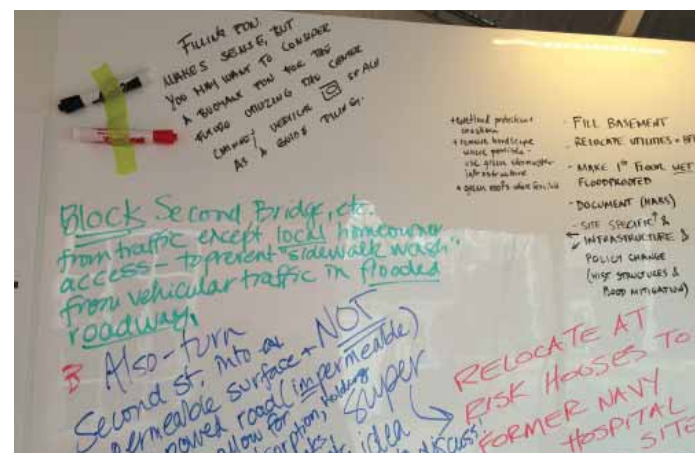 FILLING FDN.
MAKES SENSE, BUT
YOU MAY WANT TO CONSIDER
A BUOYANT FDN FOR THE
FUTURE UTILIZING THE CENTER
CHIMNEY VERTICAL SPACE
AS A GUIDE PILING.
+ wetland protection
+ remove hardscape
where possible -
use green stormwater
infrastructure
+ green roofs where feasible
- FILL BASEMENT
- RELOCATE UTILITIES
- MAKE 1ST FLOOR WET
FLOODPROOFED
- DOCUMENT (HABS)
- SITE SPECIFIC &
INFRASTRUCTURE &
POLICY CHANGE
(HIST STRUCTURES &
FLOOD MITIGATION)
Block Second Bridge, etc.
from traffic except local homeowner
access - to prevent "sidewalk wash"
from vehicular traffic in flooded
roadway.
Also - turn
Second St. into a
permeable surface + NOT
paved road (impermeable)
allow for
absorption, holding
super
idea
discuss!
RELOCATE AT
RISK HOUSES TO
FORMER NAVY
HOSPITAL
SITE